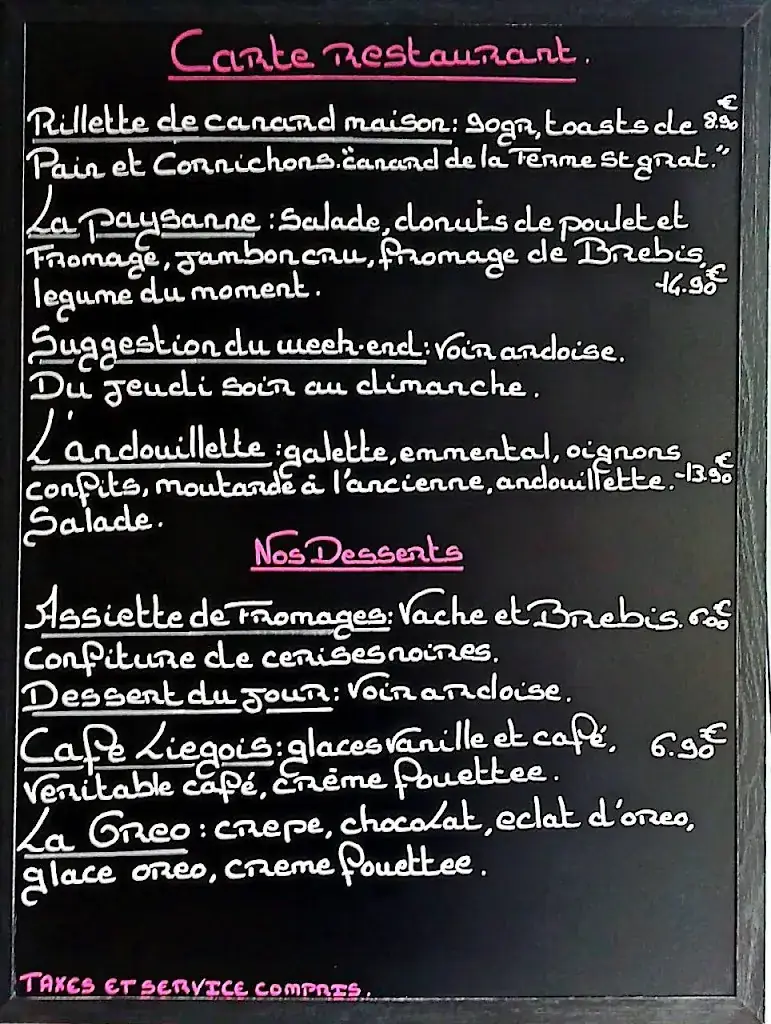 Carte restaurant.
Rillette de canard maison: 90gr, toasts de 8.90€
Pain et Cornichons. "canard de la Ferme St grat."
La Paysanne : Salade, donuts de poulet et
Fromage, jambon cru, fromage de Brebis,
legume du moment. 14.90€
Suggestion du week-end: voir ardoise.
Du jeudi soir au dimanche.
L'andouillette : galette, emmental, oignons
confits, moutarde à l'ancienne, andouillette. -13.90€
Salade.
Nos Desserts
Assiette de Fromages: Vache et Brebis. 6.00€
Confiture de cerises noires.
Dessert du jour: voir ardoise.
Cafe Liegois: glaces vanille et café, 6.90€
veritable café, crème fouettee.
La Oreo : crepe, chocolat, eclat d'oreo,
glace oreo, creme fouettee.
TAXES ET SERVICE COMPRIS.